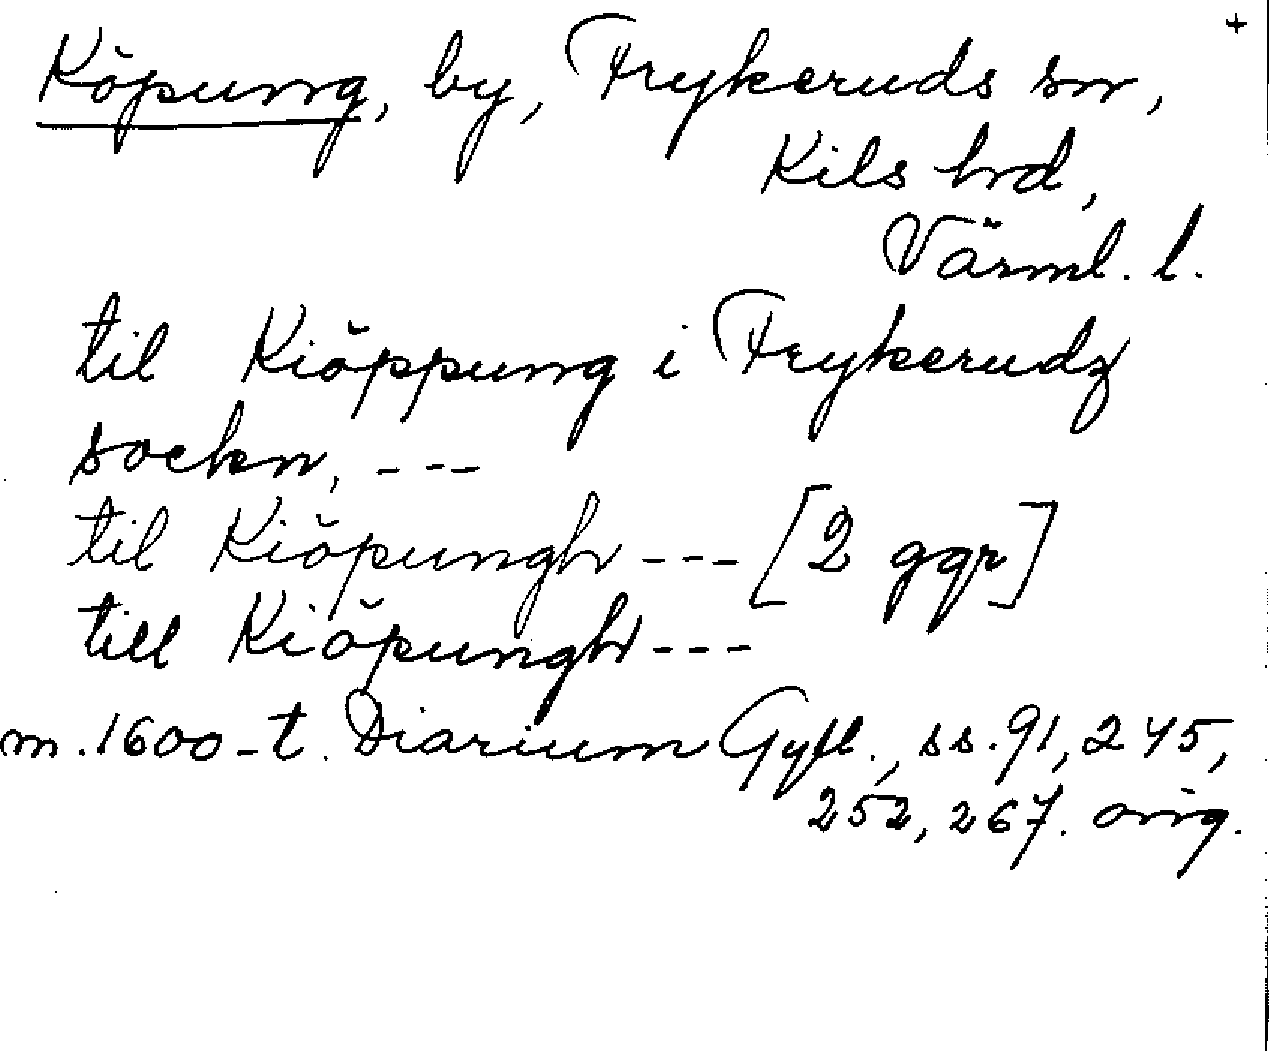 +
Köpung, by, Frykeruds sn,
Kils hd,
Värml. l.
til Kiöppung i Frykerudz
sockn, ---
til Kiöpungh --- [2 ggr]
till Kiöpungh ---
m. 1600-t. Diarium Gyll., ss. 91, 245,
252, 267. orig.